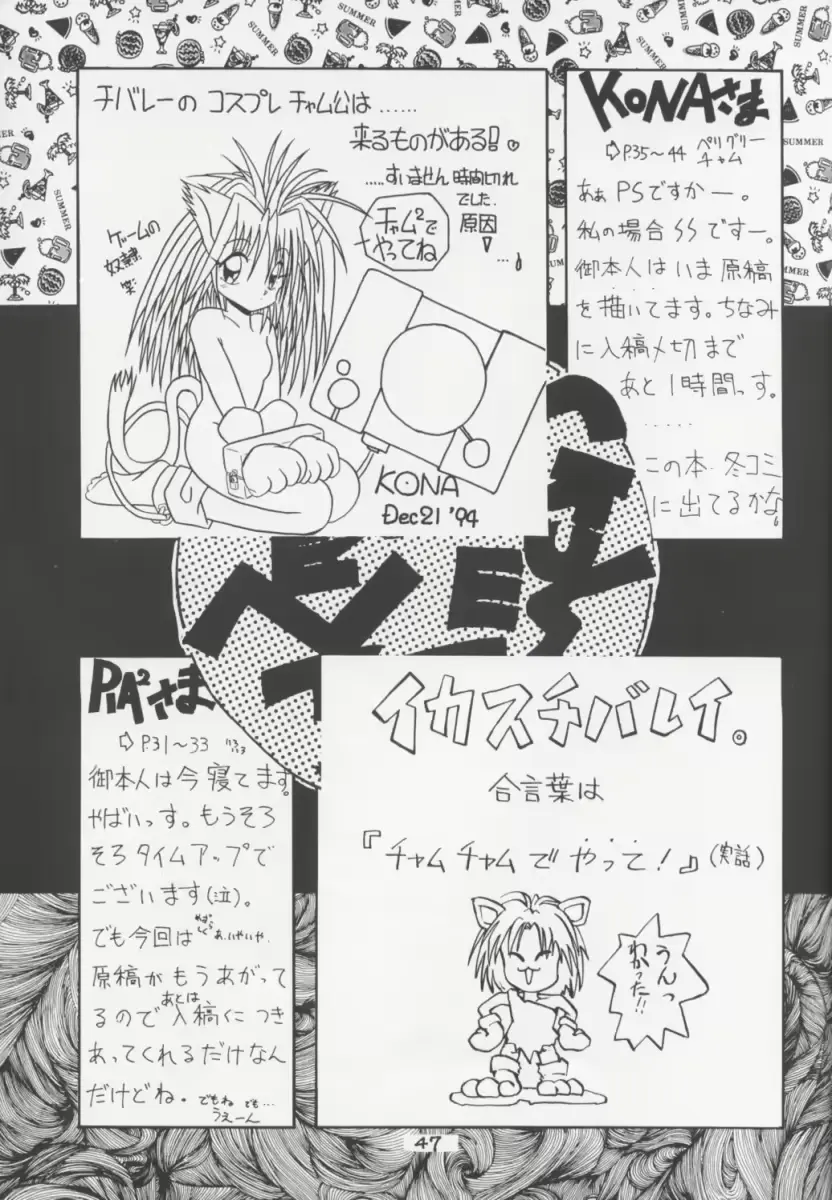 チバレーの コスプレ チャム公は……
来るものがある!!♥
……すいません 時間切れ
でした.
原因
…♪
チャム²で
やってね
ゲームの
奴隷
笑
KONA
Dec 21 '94
KONAさま
⇨P.35〜44 ペリグリー
チャム
あぁ PSですかー。
私の場合 SSですー。
御本人は いま 原稿
を描いてます。ちなみ
に入稿〆切まで
あと1時間っす。
……
この本… 冬コミ
に出てるかな。
PIA²さま
⇨P.31〜33
御本人は今寝てます。
やばいっす。もうそろ
そろタイムアップで
ございます(泣)。
でも今回は あ、いやいや
原稿がもうあがって
るので あとは 入稿につき
あってくれるだけなん
だけどね. でもね でも…
うえーん
イカスチバレイ。
合言葉は
『チャムチャムでやって!』(実話)
うんっ
わかった!!
SUMMER
SUMMER
SUMMER
SUMMER
SUMMER
47